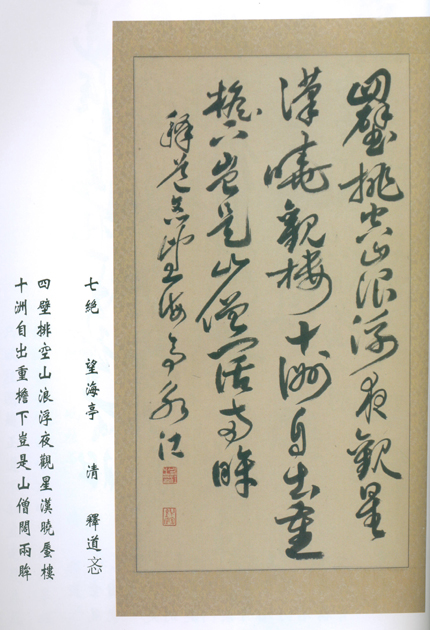 四壁排空山浪浮夜觀星
漢曉觀樓十洲自出重
檐下豈是山僧闊兩眸
釋道忞望海亭 永江
七絕 望海亭 清 釋道忞
四壁排空山浪浮夜觀星漢曉蜃樓
十洲自出重檐下豈是山僧闊兩眸